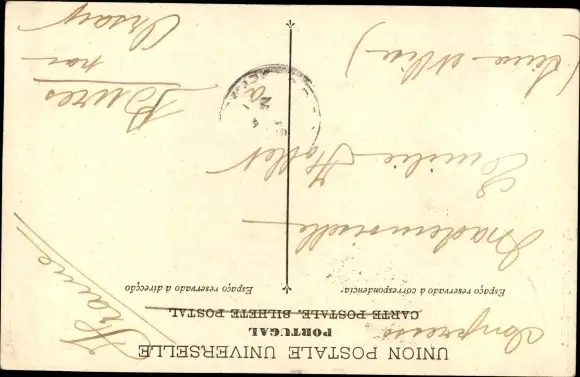 UNION POSTALE UNIVERSELLE
PORTUGAL
CARTE POSTALE. BILHETE POSTAL
Espaço reservado á correspondencia
Espaço reservado á direcção
France
Mademoiselle
Emilie
Bures
par
Orsay
(Seine et Oise)